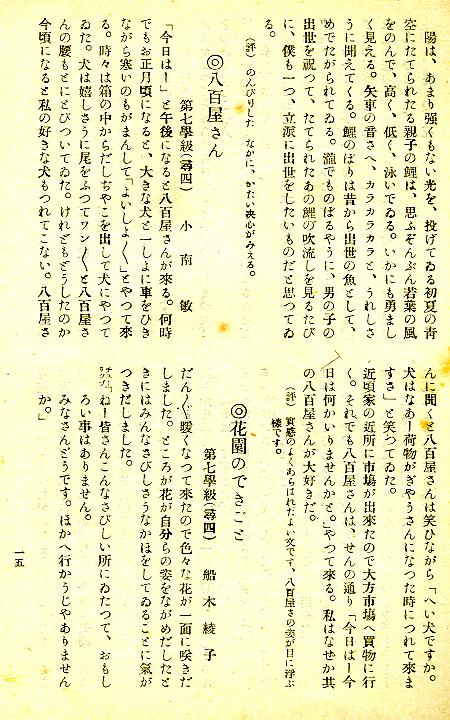 陽は、あまり强くもない光を、投げてゐる初夏の靑
空にたてられたる親子の鯉は、思ふぞんぶん若葉の風
をのんで、高く、低く、泳いでゐる。いかにも勇まし
く見える。矢車の音さへ、カラカラカラと、うれしさ
うに聞えてくる。鯉のぼりは昔から出世の魚として、
めでたがられてゐる。瀧でものぼるやうに、男の子の
出世を祝つて、たてられたあの鯉の吹流しを見るたび
に、僕も一つ、立派に出世をしたいものだと思つてゐ
る。
（評）のんびりした なかに、かたい決心がみえる。
◎八百屋さん
第七學級（尋四） 小南 敏
「今日はー」と午後になると八百屋さんが來る。何時
でもお正月頃になると、大きな犬と一しよに車をひき
ながら寒いのもがまんして「よいしよ〳〵」とやつて來
る。時々は箱の中からだしぢやこを出して犬にやつて
ゐた。犬は嬉しさうに尾をふつてワン〳〵と八百屋さ
んの腰もとにとびついてゐた。けれどもどうしたのか
今頃になると私の好きな犬もつれてこない。八百屋さ
んに聞くと八百屋さんは笑ひながら「へい犬ですか。
犬はなあー荷物がぎやうさんになつた時につれて來ま
すさ」と笑つてゐた。
近頃家の近所に市場が出來たので大方市場へ買物に行
く。それでも八百屋さんは、せんの通り「今日はー今
日は何かいりませんかと。」やつて來る。私はなぜか其
の八百屋さんが大好きだ。
（評）實感のよくあらはれたよい文です、八百屋さの姿が目に浮ぶ
樣です。
◎花園のできごと
第七學級（尋四） 船木綾子
だん〳〵暖くなつて來たので色々な花が一面に咲きだ
しました。ところが花が自分らの姿をながめだしたと
きにはみんなさびしさうなかほをしてゐることに氣が
つきだしました。
チューリップ「ねー皆さんこんなさびしい所にゐたつて、おもし
ろい事はありません。
みなさんどうです。ほかへ行かうじやありません
か。」
一五